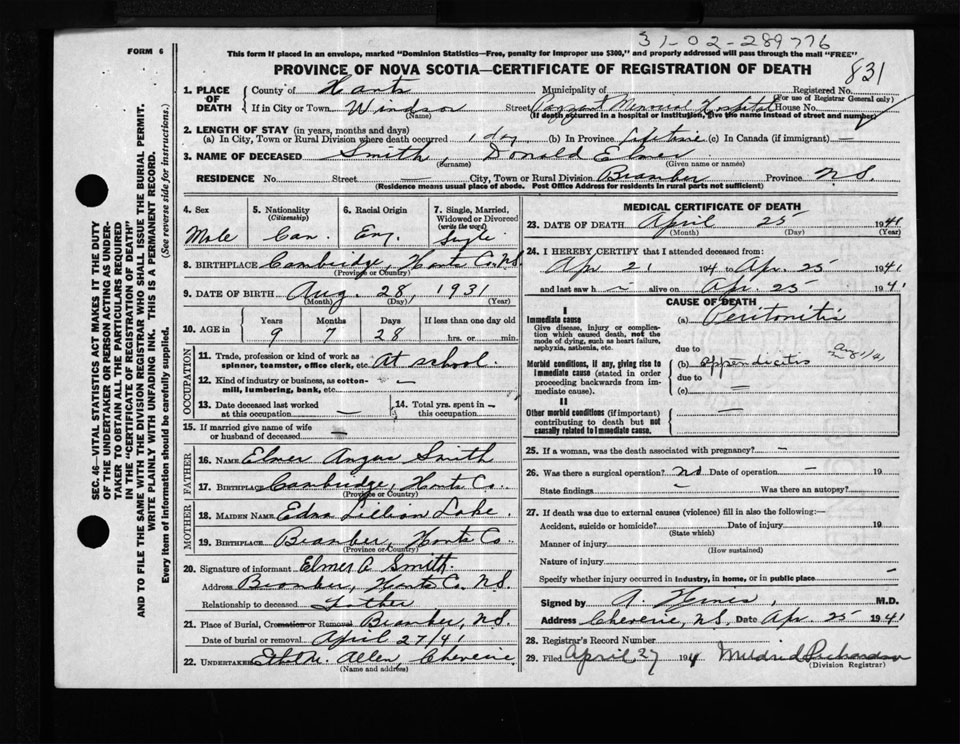 31-02-289776
FORM 6
This form if placed in an envelope, marked "Dominion Statistics—Free, penalty for improper use $300," and properly addressed will pass through the mail "FREE"
PROVINCE OF NOVA SCOTIA—CERTIFICATE OF REGISTRATION OF DEATH
831
1. PLACE OF DEATH
County of Hants Municipality of Registered No.
(For use of Registrar General only)
If in City or Town Windsor Street Payzant Memorial Hospital House No.
(Name) (If death occurred in a hospital or institution, give the name instead of street and number)
2. LENGTH OF STAY (in years, months and days)
(a) In City, Town or Rural Division where death occurred 1 day (b) In Province Lifetime (c) In Canada (if immigrant) —
3. NAME OF DECEASED Smith, Donald Elmer
(Surname) (Given name or names)
RESIDENCE No. Street — City, Town or Rural Division Bramber Province N.S.
(Residence means usual place of abode. Post Office Address for residents in rural parts not sufficient)
4. Sex
Male
5. Nationality
(Citizenship)
Can.
6. Racial Origin
Eng.
7. Single, Married, Widowed or Divorced
(write the word)
Single
8. BIRTHPLACE Cambridge, Hants Co. N.S.
(Province or Country)
9. DATE OF BIRTH Aug. 28 1931
(Month) (Day) (Year)
10. AGE in Years Months Days If less than one day old
9 7 28 hrs. or min.
OCCUPATION
11. Trade, profession or kind of work as spinner, teamster, office clerk, etc. At school
12. Kind of industry or business, as cotton-mill, lumbering, bank, etc. —
13. Date deceased last worked at this occupation —
14. Total yrs. spent in this occupation —
15. If married give name of wife or husband of deceased —
FATHER
16. NAME Elmer Angus Smith
17. BIRTHPLACE Cambridge, Hants Co.
(Province or Country)
MOTHER
18. MAIDEN NAME Edna Lillian Lake.
19. BIRTHPLACE Bramber, Hants Co.
(Province or Country)
20. Signature of informant Elmer A Smith.
Address Bramber, Hants Co. N.S.
Relationship to deceased Father
21. Place of Burial, Cremation or Removal Bramber, N.S.
Date of burial or removal April 27/41
22. UNDERTAKER Allen, Cheverie
(Name and address)
MEDICAL CERTIFICATE OF DEATH
23. DATE OF DEATH April 25 1941
(Month) (Day) (Year)
24. I HEREBY CERTIFY that I attended deceased from:
Apr 21 194 to Apr. 25 1941
and last saw h i alive on Apr. 25 1941
CAUSE OF DEATH
I
Immediate cause
Give disease, injury or complication which caused death, not the mode of dying, such as heart failure, asphyxia, asthenia, etc.
(a) Peritonitis
due to
Morbid conditions, if any, giving rise to immediate cause (stated in order proceeding backwards from immediate cause).
(b) appendicitis
due to —
(c)
II
Other morbid conditions (if important) contributing to death but not causally related to immediate cause. —
25. If a woman, was the death associated with pregnancy? —
26. Was there a surgical operation? no Date of operation — 19
State findings — Was there an autopsy?
27. If death was due to external causes (violence) fill in also the following:—
Accident, suicide or homicide? Date of injury 19
(State which)
Manner of injury
(How sustained)
Nature of injury
Specify whether injury occurred in industry, in home, or in public place —
Signed by A. M.D.
Address Cheverie, N.S. Date Apr. 25 1941
28. Registrar's Record Number
29. Filed April 27 194 Mildred Richardson
(Division Registrar)
SEC. 46—VITAL STATISTICS ACT MAKES IT THE DUTY
OF THE UNDERTAKER OR PERSON ACTING AS UNDER-
TAKER TO OBTAIN ALL THE PARTICULARS REQUIRED
IN THE "CERTIFICATE OF REGISTRATION OF DEATH"
AND TO FILE THE SAME WITH THE DIVISION REGISTRAR WHO SHALL ISSUE THE BURIAL PERMIT.
WRITE PLAINLY WITH UNFADING INK. THIS IS A PERMANENT RECORD.
Every item of information should be carefully supplied. (See reverse side for instructions.)